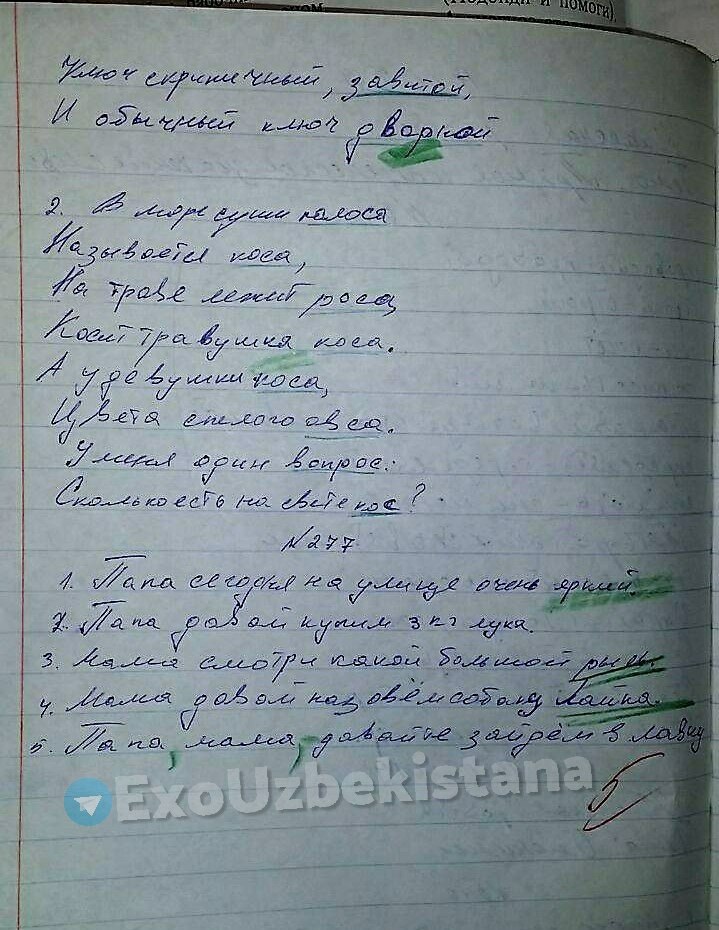 (Подойди и помога).
Ключ скрипичный, завитой,
И обычный ключ дварной
2. В море суши полоса
Называется коса,
На траве лежит роса,
Косит травушка коса.
А у девушки коса,
Цвета спелого овса.
У меня один вопрос:
Сколько есть на свете кос?
№277
1. Папа сегодня на улице очень яркий.
2. Папа давой купим 3 кг лука.
3. Мама смотри какой большой рысь.
4. Мама давой назовём собаку лайка.
5. Папа, мама, давайте зайдём в лавку
ExoUzbekistana
5